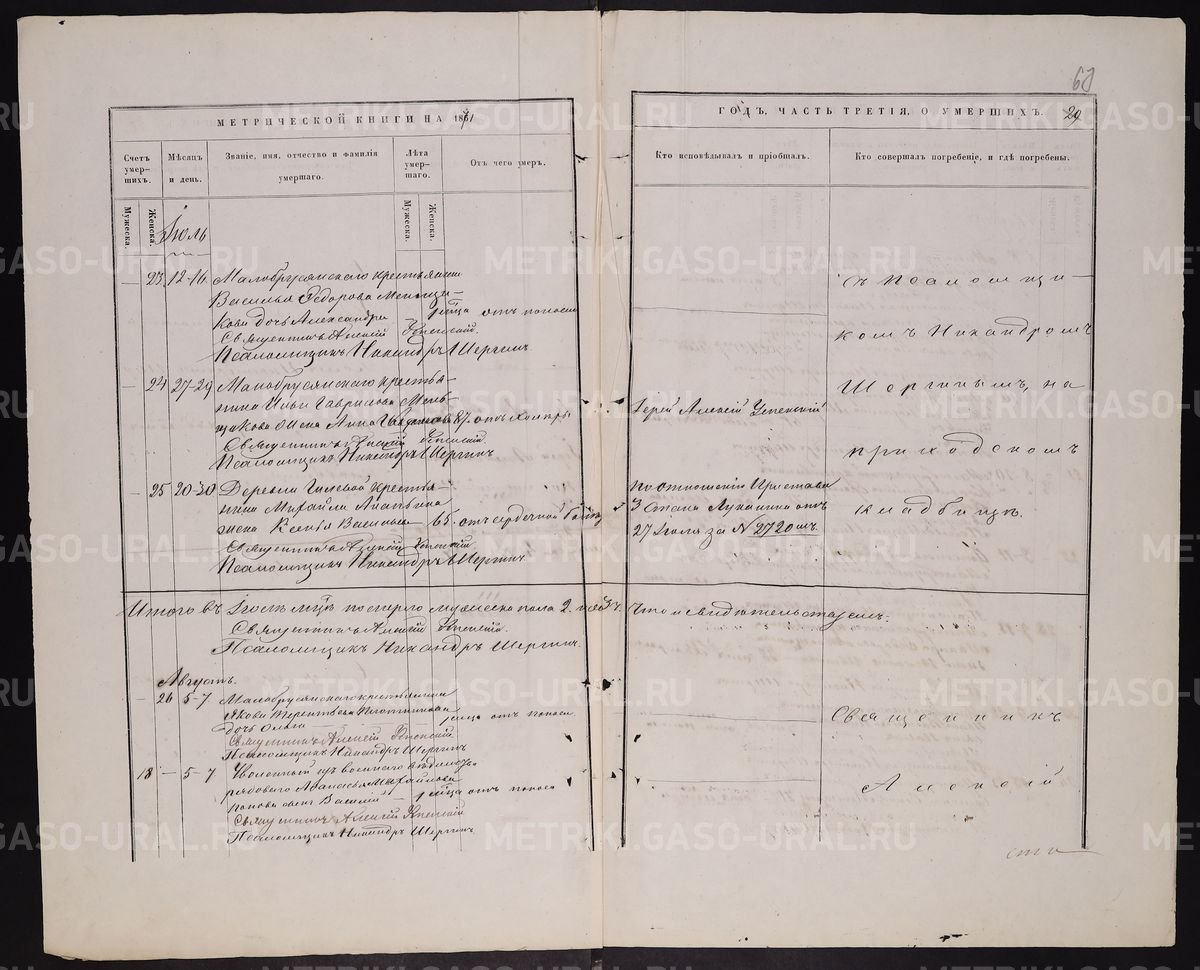 60
МЕТРИЧЕСКОЙ КНИГИ НА 1871
ГОДЪ, ЧАСТЬ ТРЕТІЯ, О УМЕРШИХЪ. 29
Счетъ умершихъ.
Мѣсяцъ и день.
Званіе, имя, отчество и фамилія умершаго.
Лѣта умершаго.
Отъ чего умеръ.
Кто исповѣдывалъ и пріобщалъ.
Кто совершалъ погребеніе, и гдѣ погребены.
Мужеска.
Женска.
Мужеска.
Женска.
Іюль
— 23 12-16 Малобрусянскаго крестьянина
Василья Федорова Меньщи-
кова дочь Александра отъ поноса
Священникъ Алексій Успенскій.
Псаломщикъ Никандръ Шергинъ
— 24 27-29 Малобрусянскаго крестья-
нина Ильи Гаврилова Мень-
щикова жена Анна 87. отъ холеры
Священникъ Алексій Успенскій
Псаломщикъ Никандръ Шергинъ
Іерей Алексій Успенскій
— 25 20-30 Деревни Гилевой крестья-
нина Михайла
жена Ксенья Васильева 65. отъ сердечной
Священникъ Алексій Успенскій
Псаломщикъ Никандръ Шергинъ.
По отношенію Пристава
3 Стана Луканина отъ
27 Іюля за № 2720мъ.
съ Псаломщи-
комъ Никандромъ
Шергинымъ, на
приходскомъ
кладбищѣ.
Итого въ Іюлѣ мцѣ померло мужеска пола 2. Что и свидѣтельствуемъ:
Священникъ Алексій Успенскій.
Псаломщикъ Никандръ Шергинъ.
Августъ.
— 26 5-7 Малобрусянскаго крестьянина
Якова Терентьева Плотникова
дочь Ольга отъ поноса.
Священникъ Алексій Успенскій
Псаломщикъ Никандръ Шергинъ
18 — 5-7 Уволенный изъ военнаго вѣдомст.
рядоваго Афанасья Михайлова
Попова сынъ Василій — отъ поноса
Священникъ Алексій Успенскій
Псаломщикъ Никандръ Шергинъ.
Священникъ
Алексій
METRIKI.GASO-URAL.RU